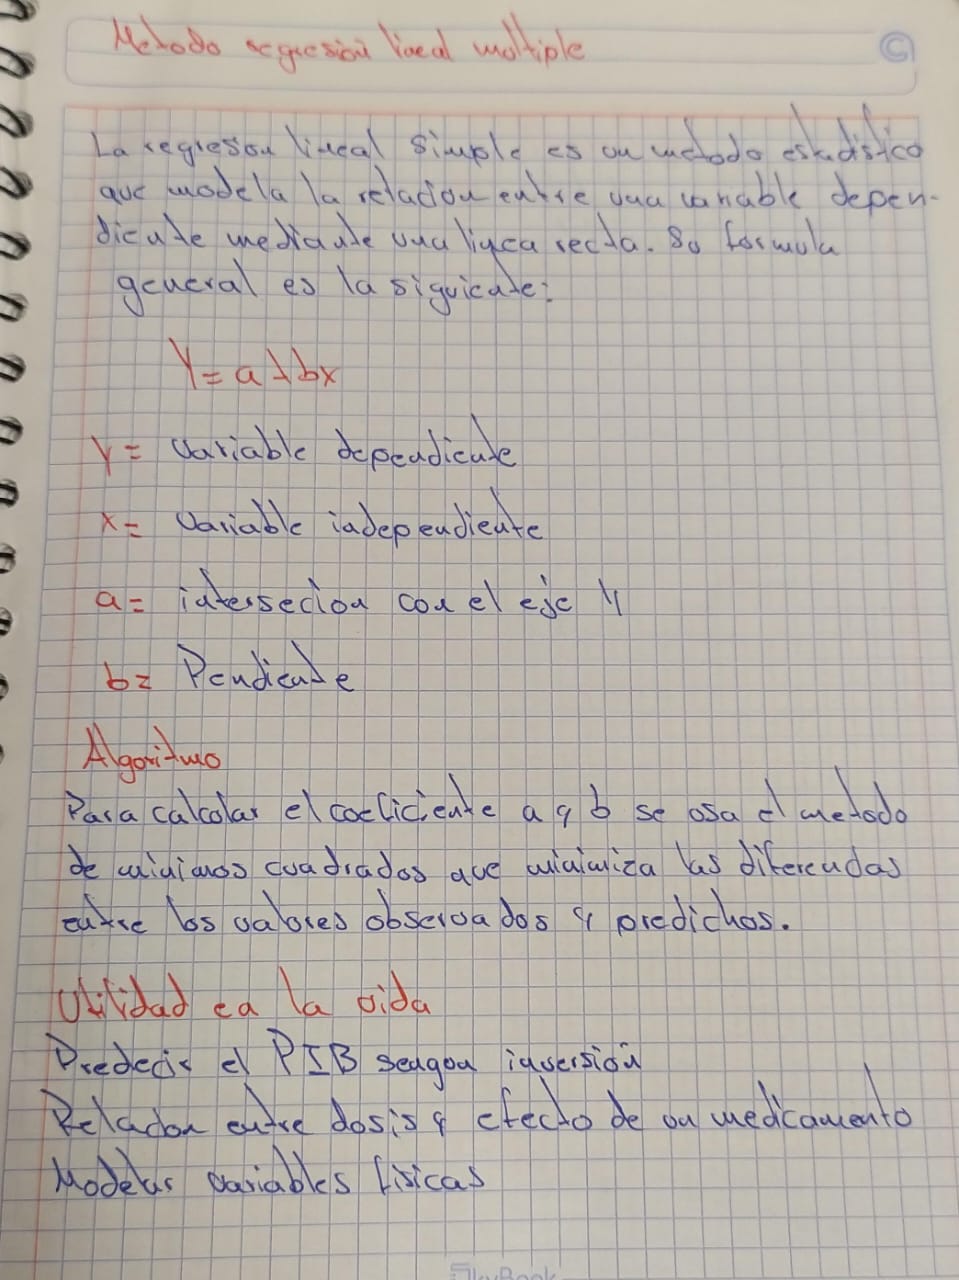 Metodo regresión lineal multiple
La regresion lineal simple es un metodo estadistico
que modela la relacion entre una variable depen-
diente mediante una linea recta. Su formula
general es la siguiente:
Y = a + bx
Y = Variable dependiente
x = Variable independiente
a = interseccion con el eje Y
b = Pendiente
Algoritmo
Para calcular el coeficiente a y b se usa el metodo
de minimos cuadrados que minimiza las diferencias
entre los valores observados y predichos.
Utilidad en la vida
Predecir el PIB seagun inversión
Relacion entre dosis y efecto de un medicamento
Modelar variables fisicas
SkyBook